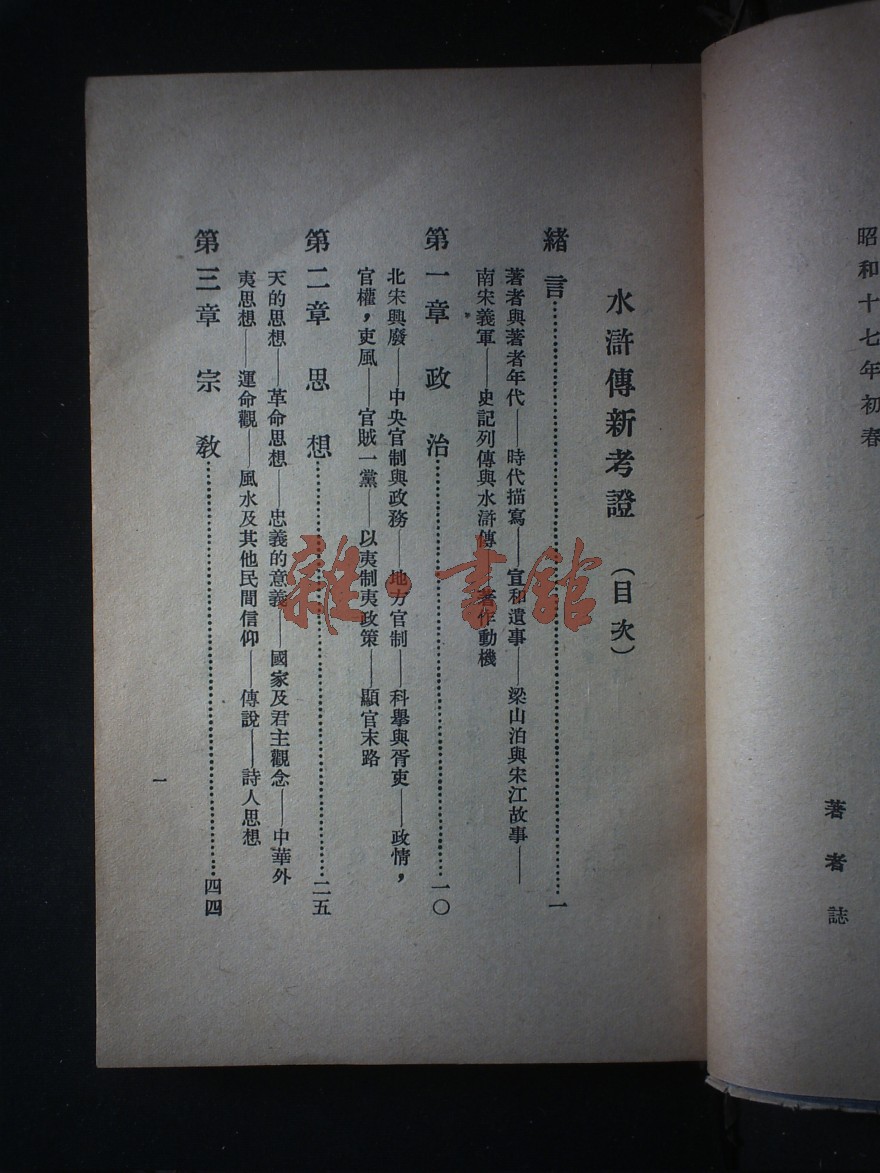 昭和十七年初春
著者誌
水滸傳新考證 （目次）
緒言……一
著者與著者年代——時代描寫——宣和遺事——梁山泊與宋江故事——
南宋義軍——史記列傳與水滸傳——著作動機
第一章 政治……一〇
北宋興廢——中央官制與政務——地方官制——科舉與胥吏——政情，
官權，吏風——官賊一黨——以夷制夷政策——顯官末路
第二章 思想……二五
天的思想——革命思想——忠義的意義——國家及君主觀念——中華外
夷思想——運命觀——風水及其他民間信仰——傳說——詩人思想
第三章 宗教……四四
一
雜·書館